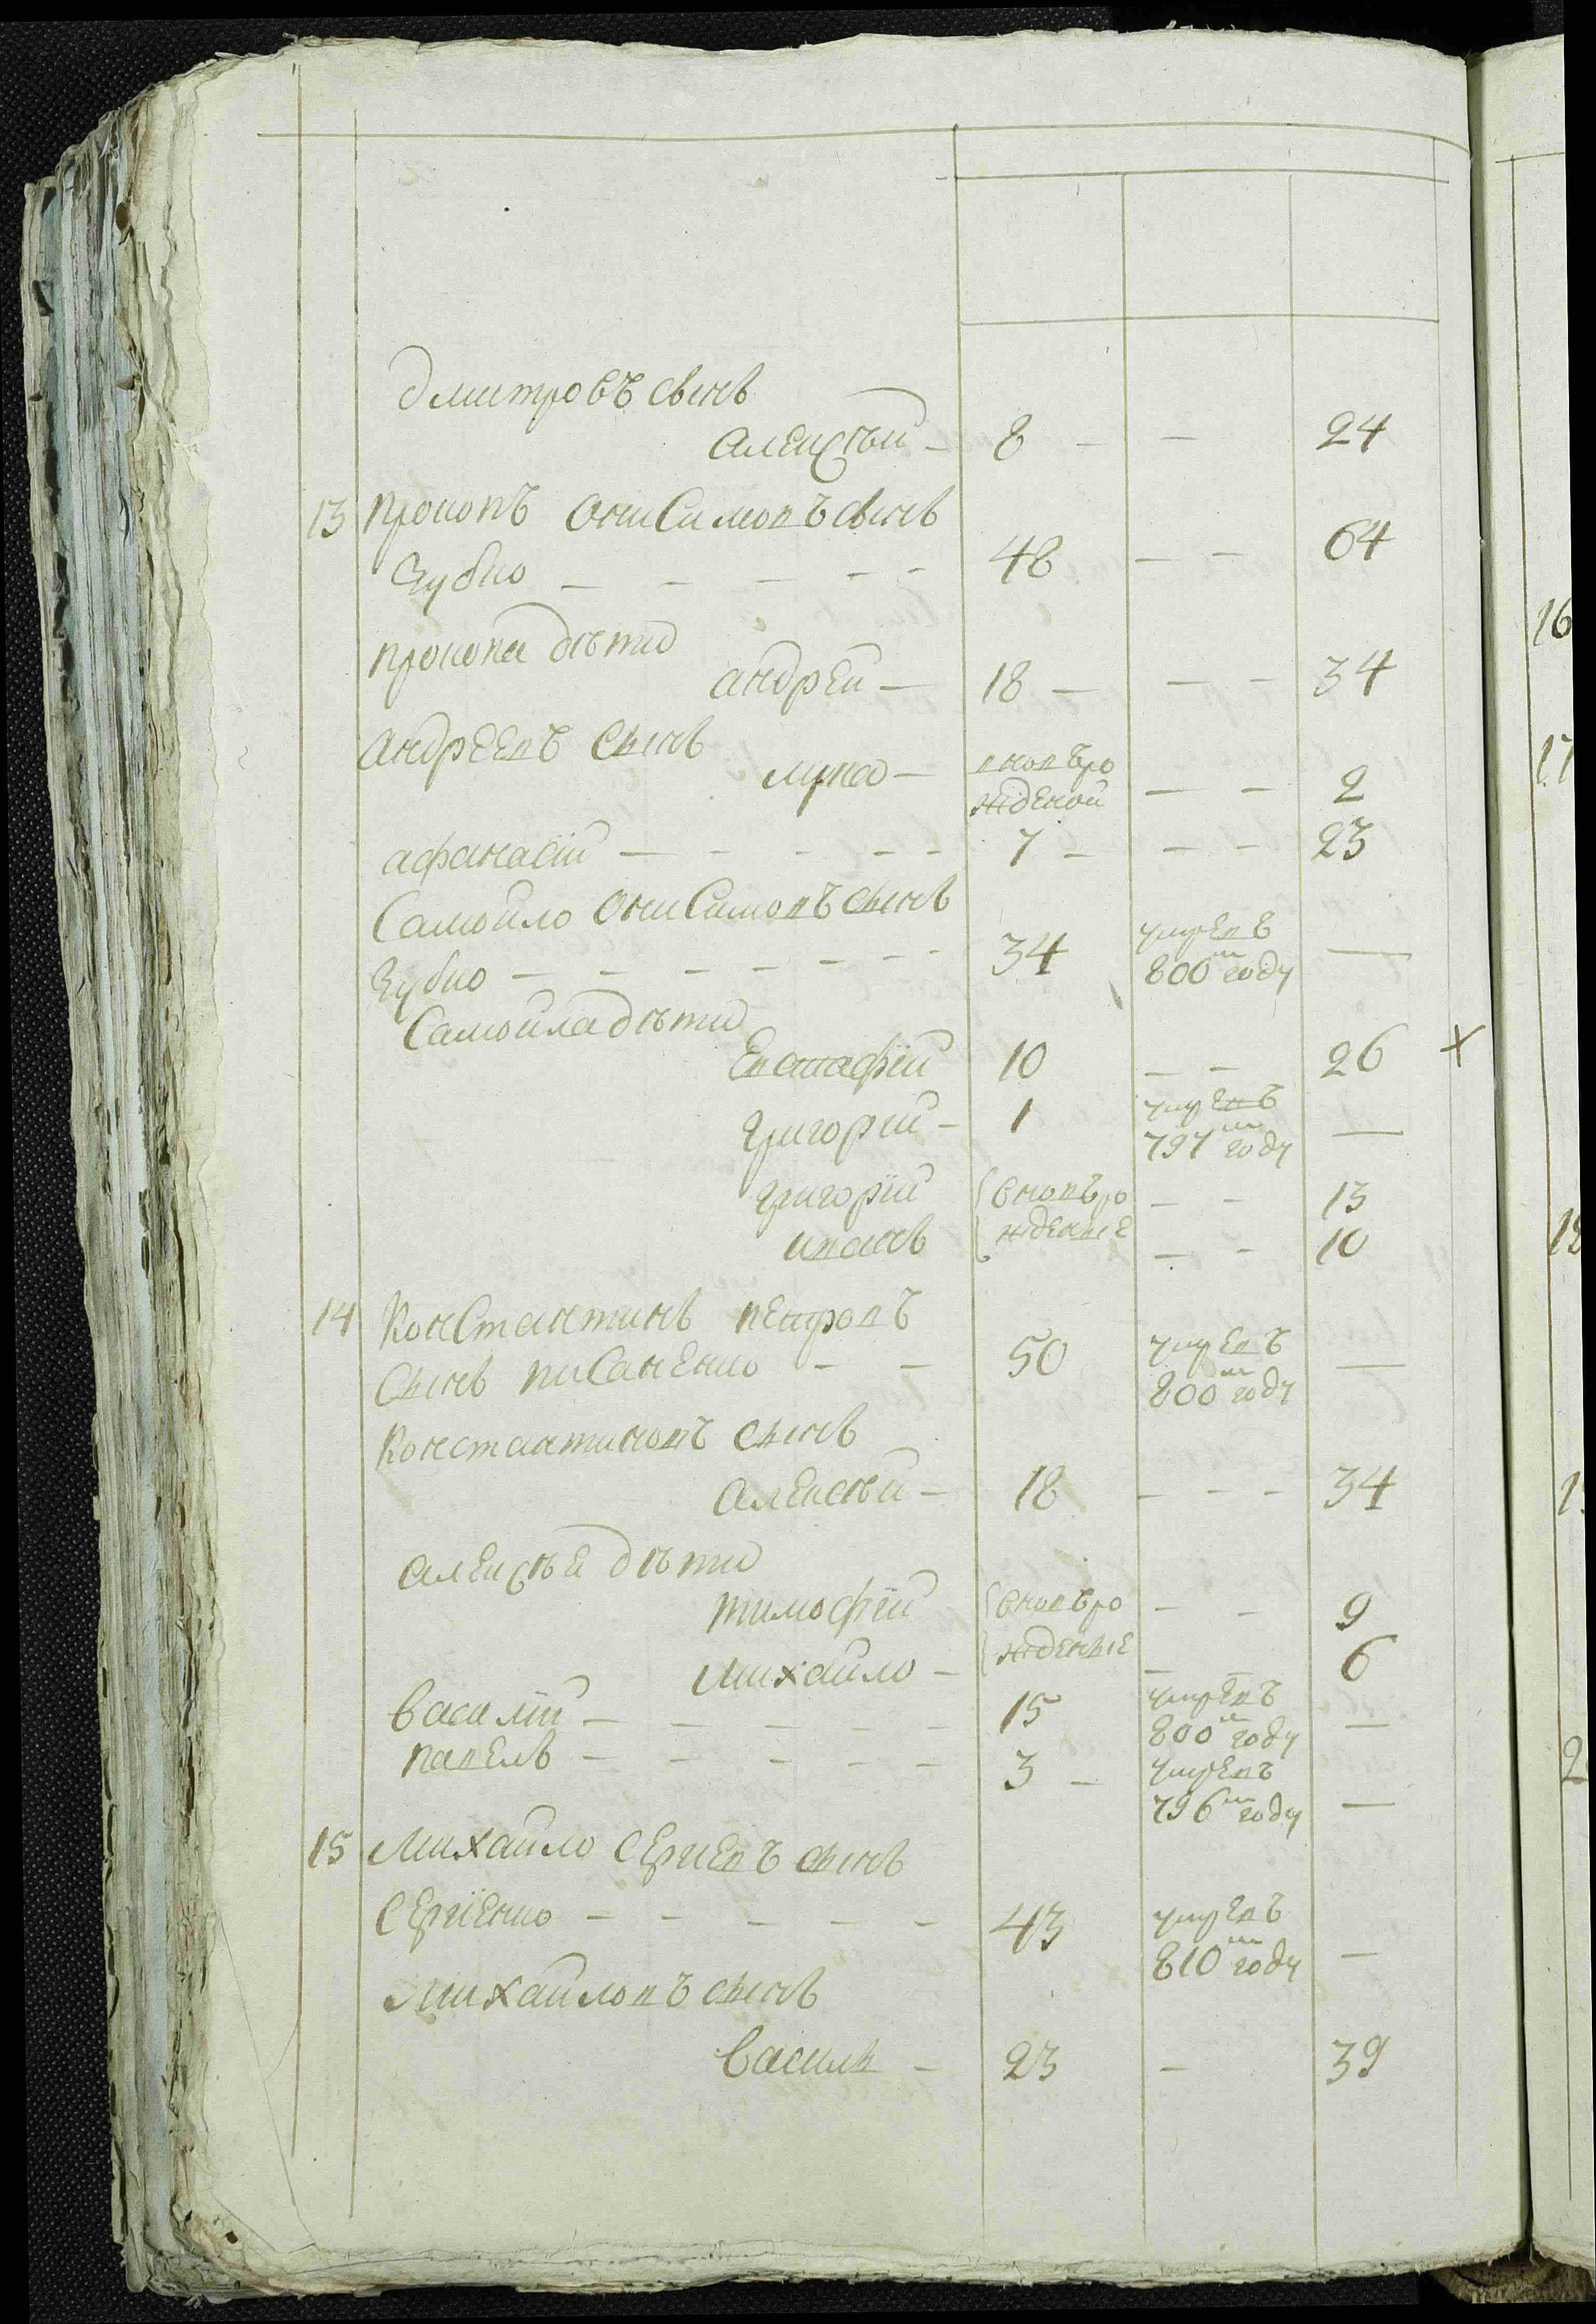 дмитровъ сынъ
Алексѣй — 8 — — 24
13 Прокопъ ОниСимовъ сынъ
Зубко — — — — — 48 — — 64
Прокопа дѣти
андрей — 18 — — — 34
Андреевъ Сынъ
лука — вновьро
жденой — — 2
афанасій — — — — — 7 — — — 23
Самойло ОниСимовъ сынъ
Зубко — — — — — — 34 умревъ
800м году —
Самойла дѣти
Евстафій 10 — — 26 х
Григорій — 1 умревъ
797м году —
Григорій вновьро — — 13
иванъ жденые — — 10
14 КонСтантинъ петровъ
Сынъ пиСаненко — — 50 умревъ
800м году —
Константиновъ Сынъ
Алексѣй — 18 — — — 34
алексѣя дѣти
тимофѣй вновьро — — 9
михайло — жденые — — 6
василій — — — — — 15 умревъ
800м году —
павелъ — — — — — 3 — умревъ
796м году —
15 Михайло Сергиевъ сынъ
Сергіенко — — — — — 43 умревъ
810м году —
Михайловъ сынъ
василь — 23 — 39
16
17
18
1
2